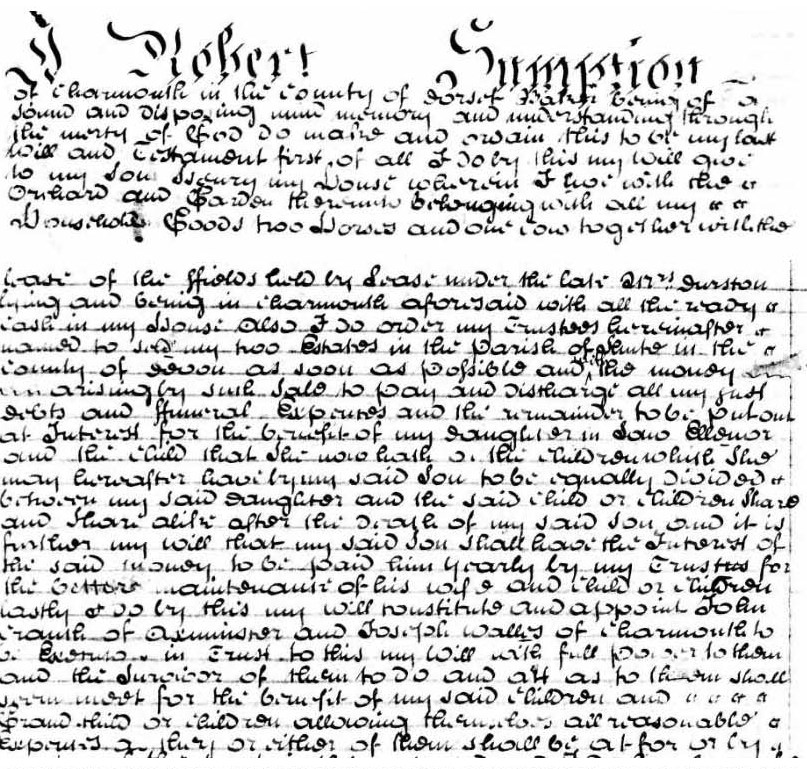 I Robert Sumption
of Charmouth in the County of Dorset Baker being of a
sound and disposing mind memory and understanding through
the mercy of God do make and ordain this to be my last
Will and Testament first of all I do by this my Will give
to my Son Henry my House wherein I live with the
Orchard and Garden thereunto belonging with all my
Household Goods two Horses and one Cow together with the
lease of the ffields held by Lease under the late Mrs Durston
lying and being in Charmouth aforesaid with all the ready
Cash in my House Also I do order my Trustees hereinafter
named to sell my two Estates in the Parish of Shute in the
County of Devon as soon as possible and with the money
arising by such Sale to pay and discharge all my just
debts and ffuneral Expences and the remainder to be put out
at Interest for the benefit of my daughter in Law Ellenor
and the Child that she now hath or the Children which she
may hereafter have by my said Son to be equally divided
between my said daughter and the said Child or Children Share
and Share alike after the Death of my said Son and it is
further my will that my said Son shall have the Interest of
the said money to be paid him yearly by my Trustees for
the better maintenance of his wife and Child or Children
lastly I do by this my Will constitute and appoint John
of Axminster and Joseph Walles of Charmouth to
be Executors in Trust to this my Will with full power to them
and the Survivor of them to do and act as to them shall
seem meet for the benefit of my said Children and
Grand Child or Children allowing themselves all reasonable
Expences as they or either of them shall be at for or by